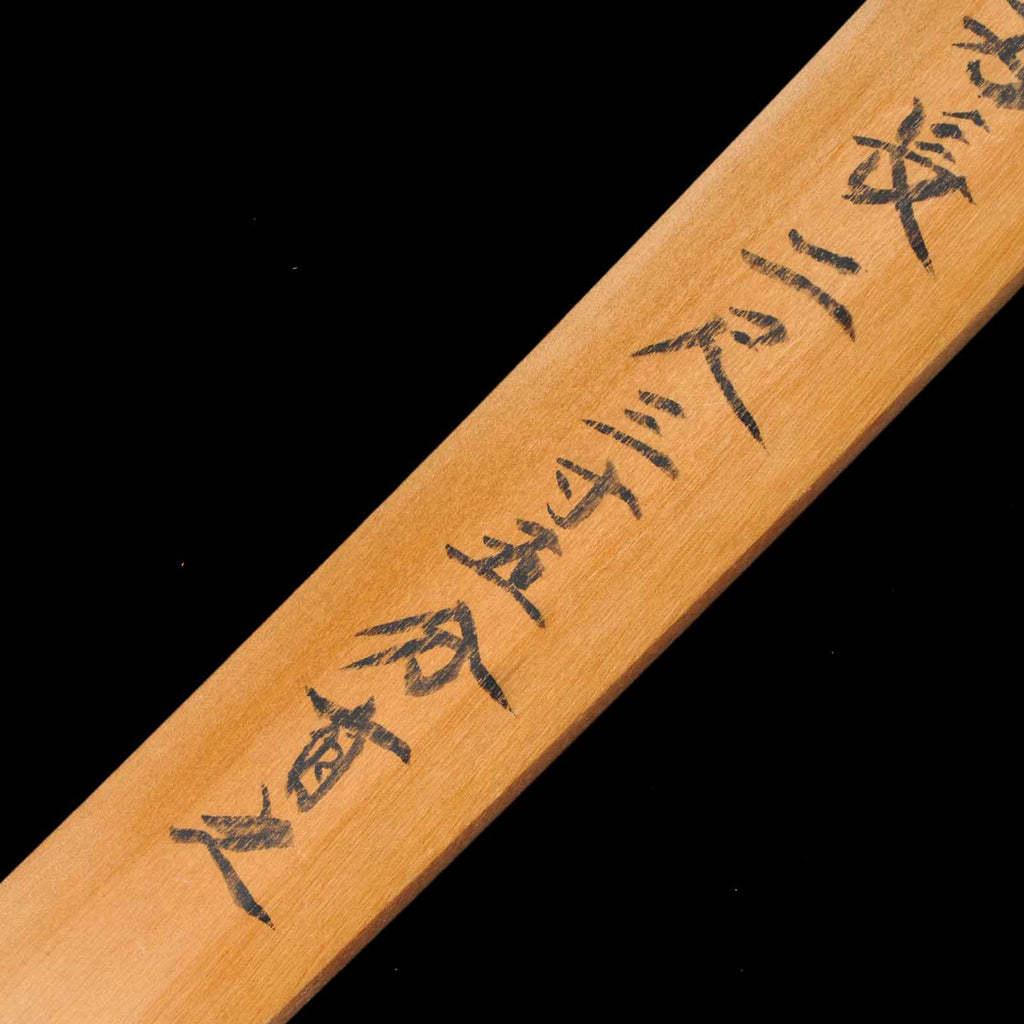 長二尺三寸五分有之